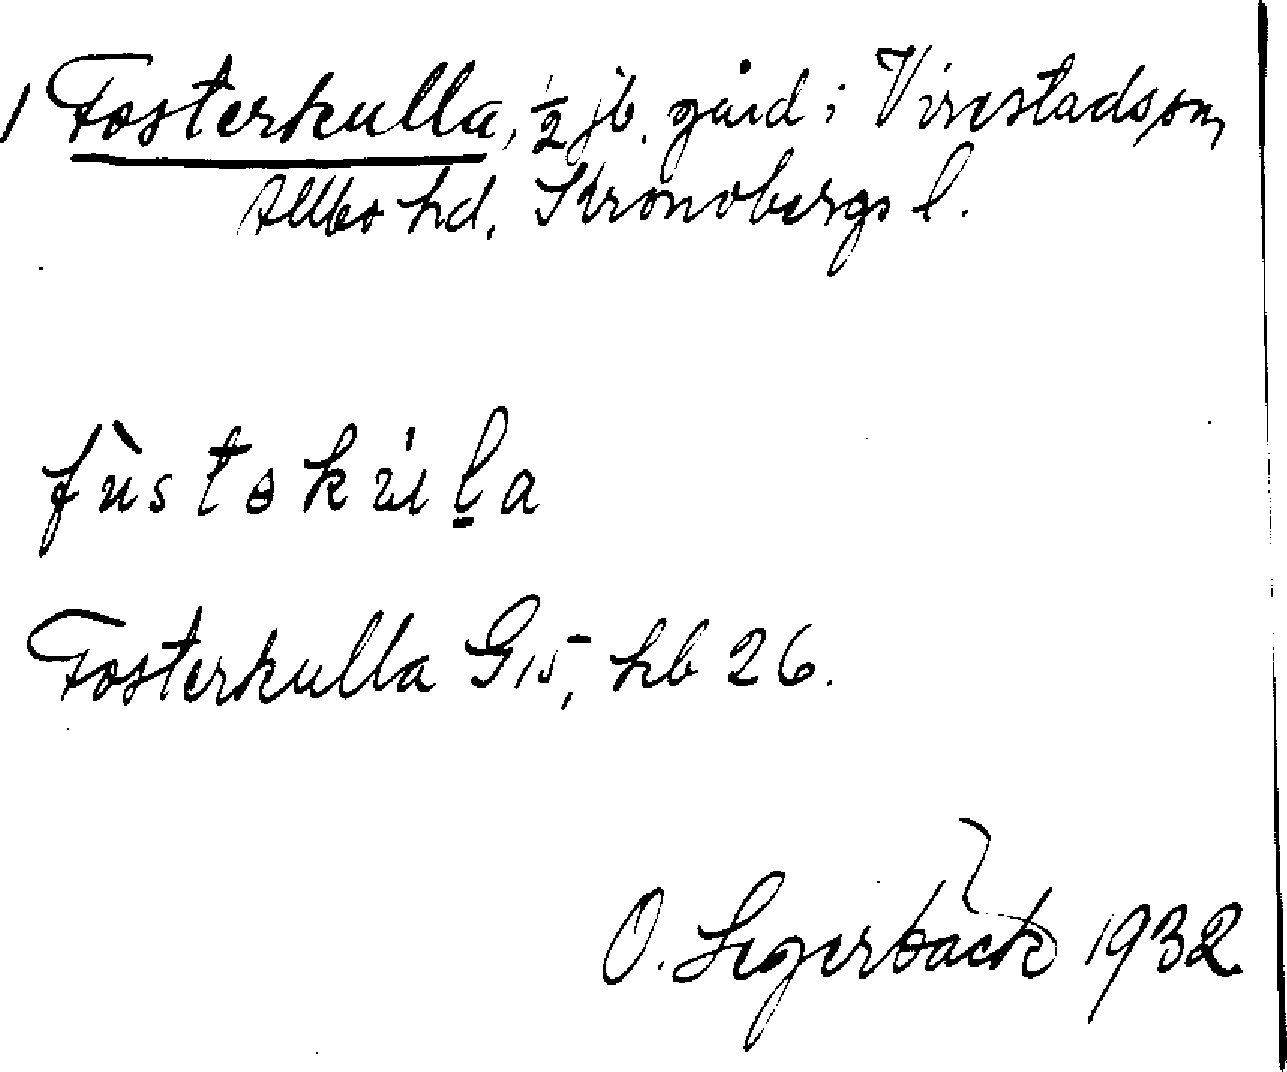 1 Fosterkulla, ½ jb. gård i Virestads sn,
Allbo hd, Kronobergs l.
fùstəkúl̠a
Fosterkulla G15, hb 26.
O. Segerbäck 1932